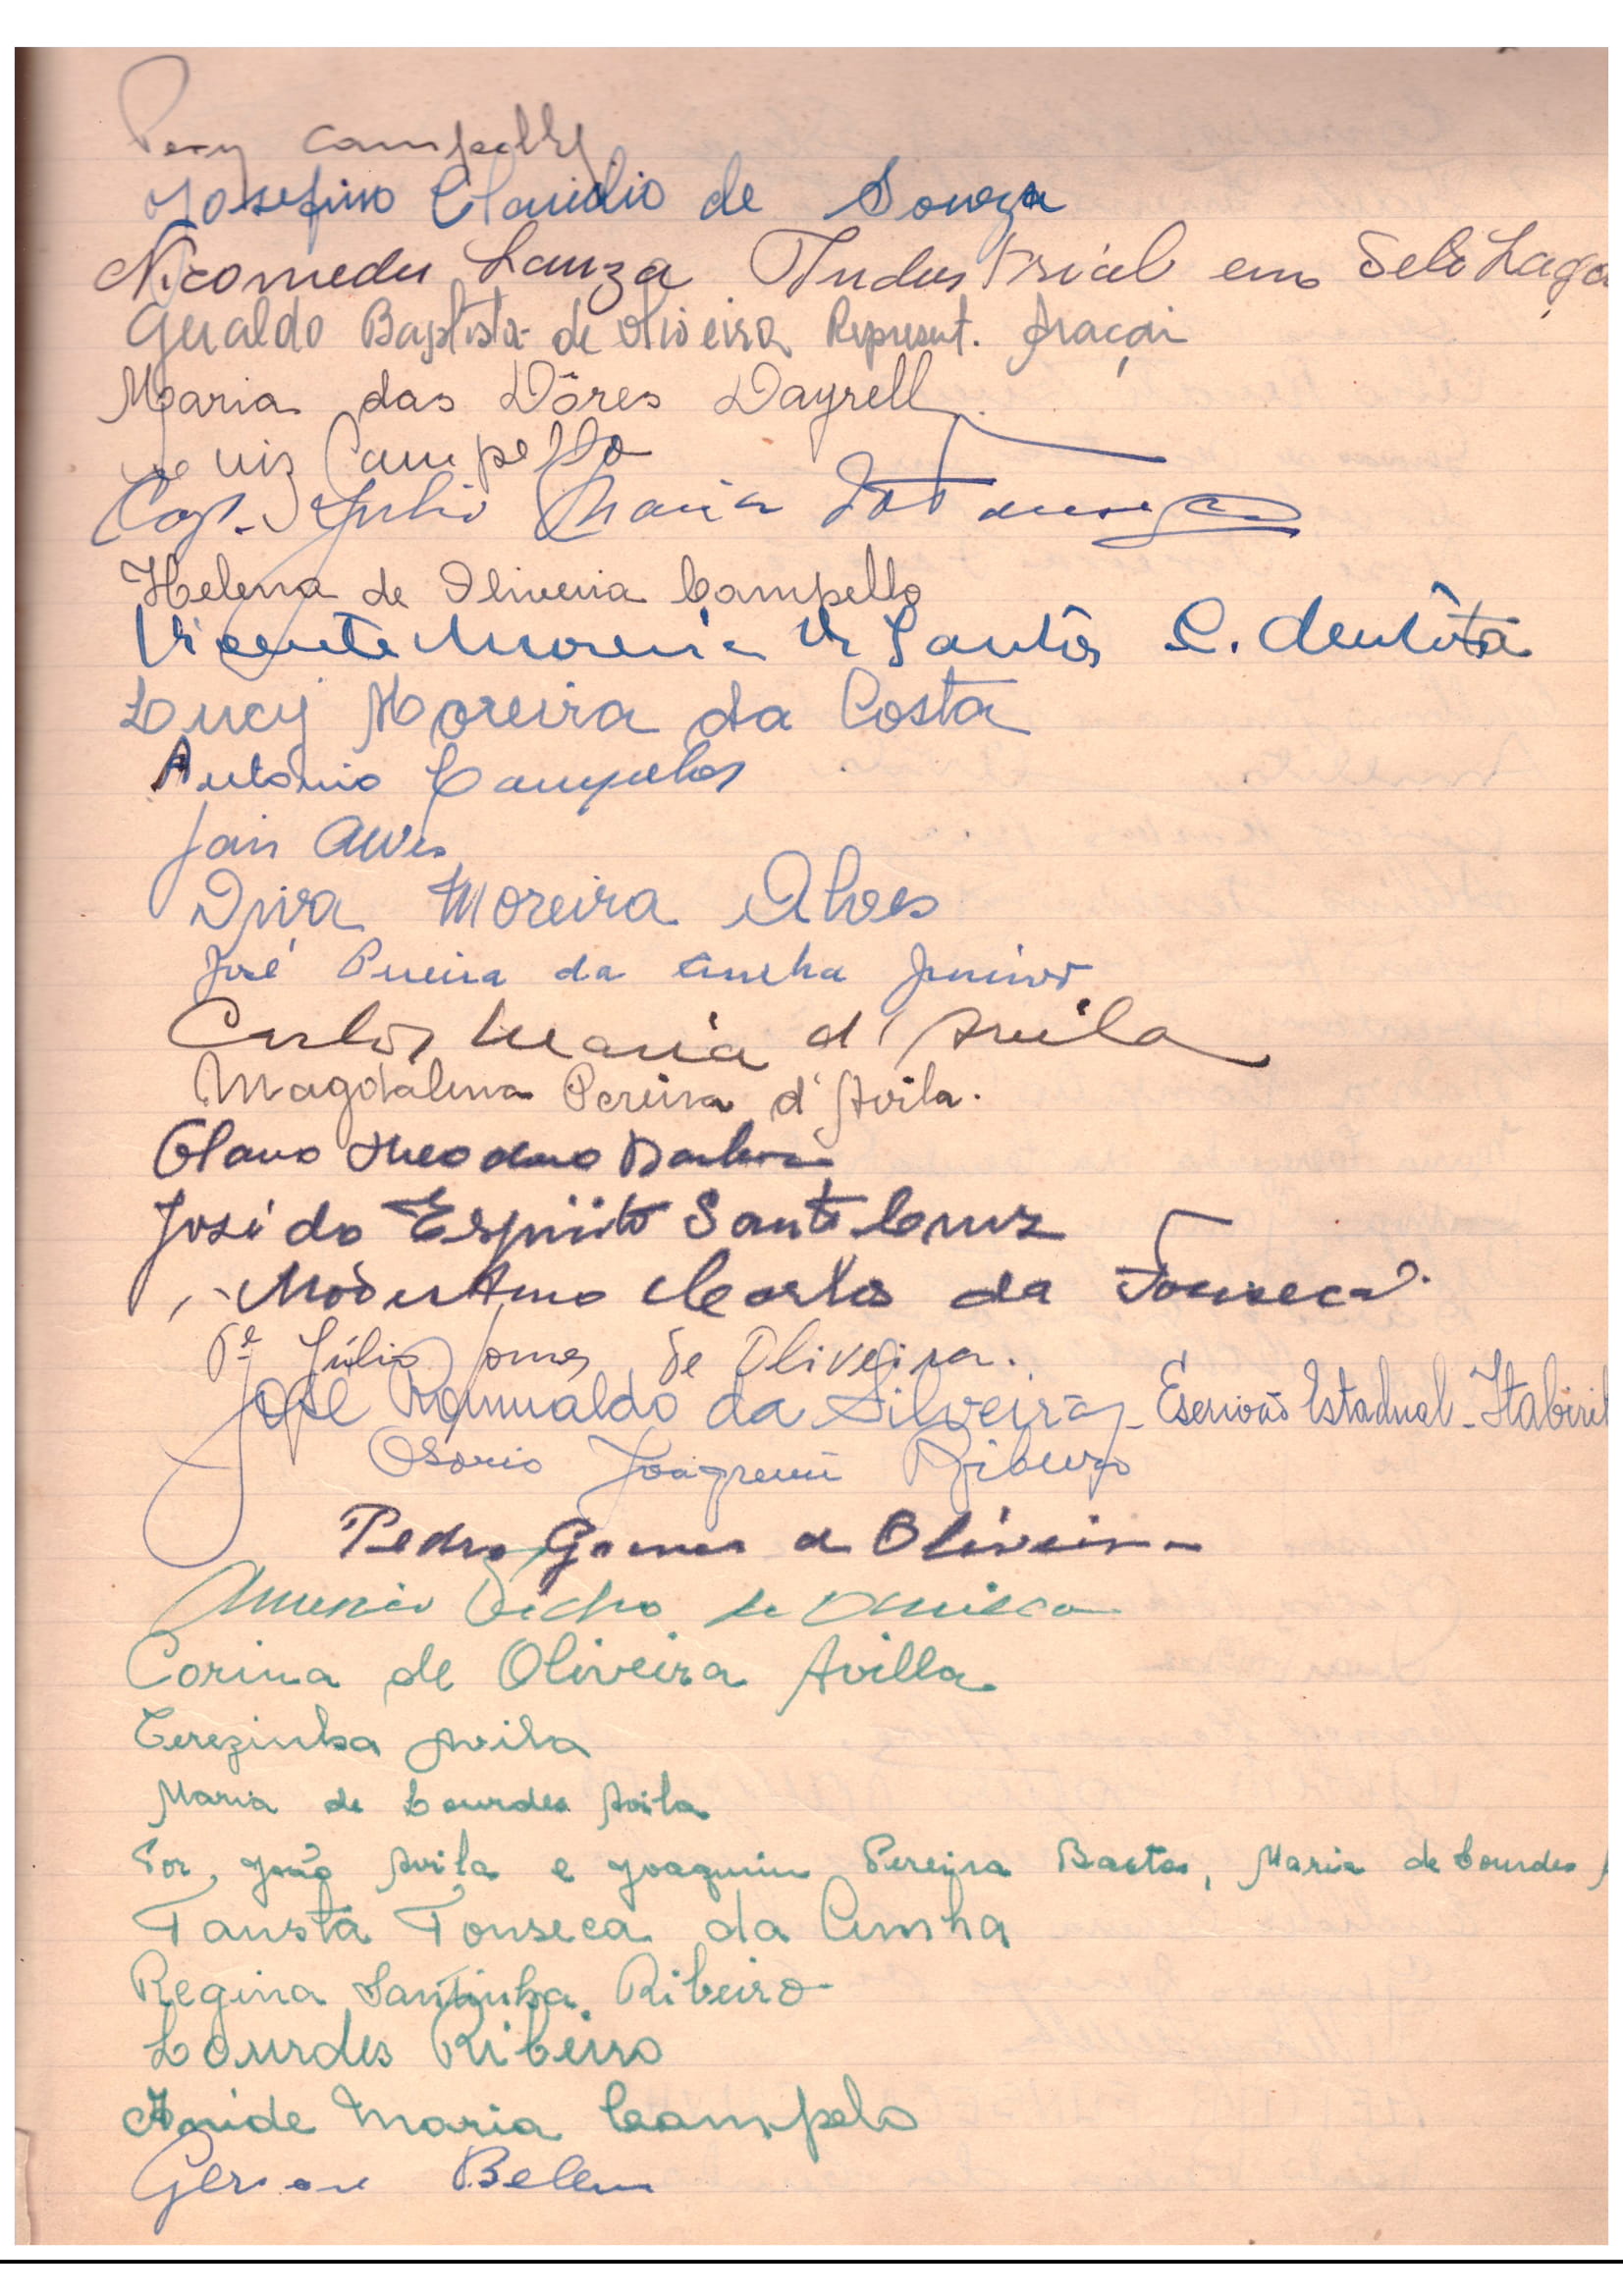 Campello
Josefino Claudio de Souza
Nicomedes Lanza Industrial em Sete Lagoa
Geraldo Baptista de Oliveira Represent. Araçai
Maria das Dôres Dayrell
Luiz Campello
Cap. Julio Maria
Helena de Oliveira Campello
Vicente Moreira dos Santos C. dentista
Lucy Moreira da Costa
Antônio Campelos
Jair Alves
Diva Moreira Alves
José Pereira da Cunha Junior
Carlos Maria d'Avila
Magdalena Pereira d'Avila.
Olavo Theodoro Barbosa
José do Espirito Santo Cruz
Modestino Carlos da Fonseca.
Pe. Júlio Gomes de Oliveira.
José Romualdo da Silveira - Escrivão Estadual - Itabirit
Osorio Joaquim Ribeiro
Pedro Gomes de Oliveira
de
Corina de Oliveira Avilla
Terezinha Avila
Maria de Lourdes Avila
Por, João Avila e Joaquim Pereira Bastos, Maria de Lourdes
Fausta Fonseca da Cunha
Regina Santinha Ribeiro
Lourdes Ribeiro
Maria Campelo
Belem